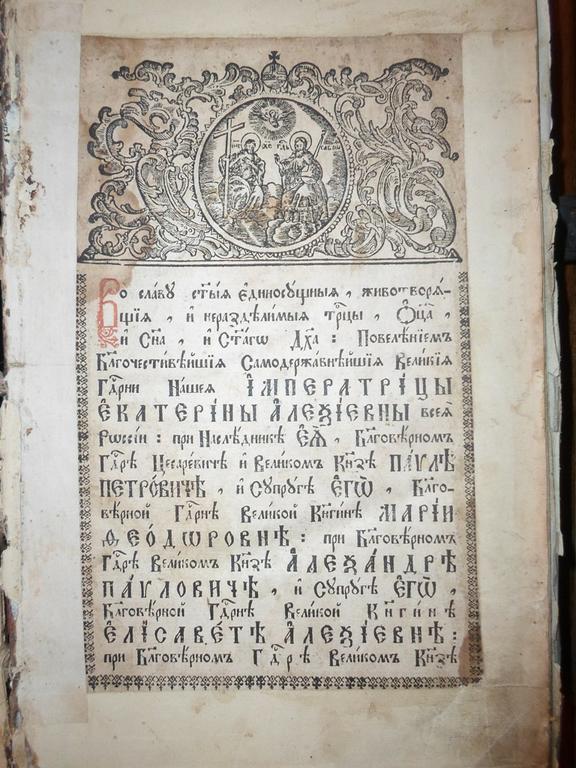 Во славу ст҃ыѧ єдиносущныѧ, животворѧ-
щїѧ, и нераздѣлимыѧ трⷪ҇цы, Ѻ҆ц҃а,
и Сн҃а, и ст҃агѡ Дх҃а: Повелѣнїемъ
Бл҃гочестивѣйшїѧ Самодержавнѣйшїѧ Великїѧ
Гдⷭ҇рни Нашеѧ І҆МПЕРАТРІЦЫ
Є҆КАТЕРІНЫ А҆ЛЕѮІЕВНЫ всеѧ
Рѡссїи: при Наслѣдникѣ Є҆Ѧ̀, Бл҃говѣрномъ
Гдⷭ҇рѣ Цесаревичѣ и Великомъ Кн҃зѣ ПА́ѴЛѢ
ПЕТРО́ВИЧѢ, и Супругѣ Є҆ГѠ̀, Бл҃го-
вѣрной Гдⷭ҇рнѣ Великой Кн҃гинѣ МАРІИ
Ѳ҆ЕѺДѠРОВНѢ: при Бл҃говѣрномъ
Гдⷭ҇рѣ Великомъ Кн҃зѣ А҆ЛЕѮА́НДРѢ
ПАѴЛОВИЧѢ, и Супругѣ Є҆ГѠ̀,
Бл҃говѣрной Гдⷭ҇рнѣ Великой Кн҃гинѣ
Є҆ЛІСАВЕ́ТѢ А҆ЛЕѮІЕВНѢ:
при Бл҃говѣрномъ Гдⷭ҇рѣ Великомъ Кн҃зѣ